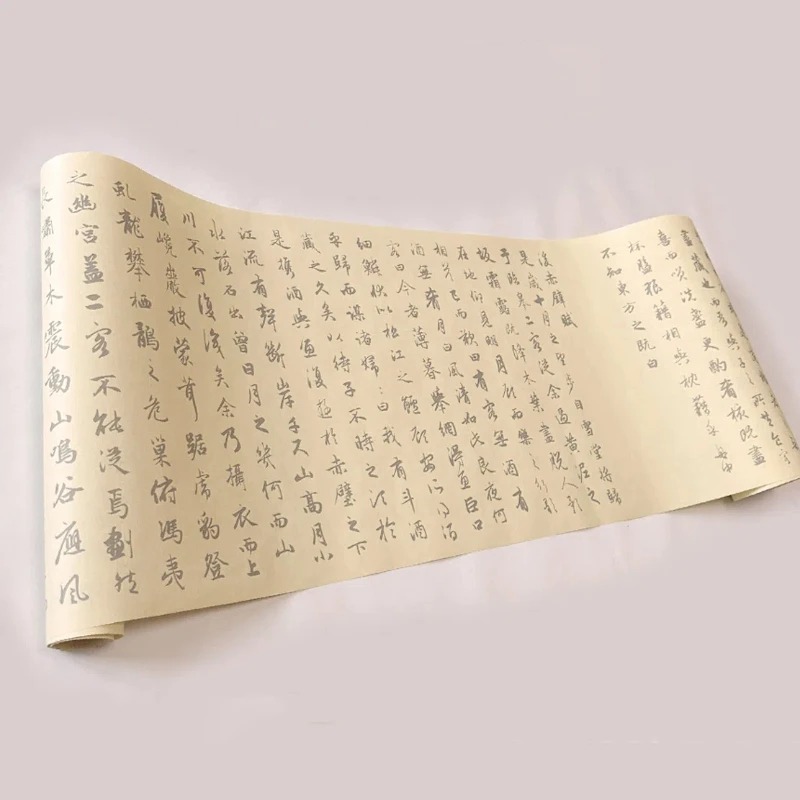 盡藏也而吾與子之所共食客
喜而笑洗盞更酌肴核既盡
杯盤狼籍相與枕藉乎舟中
不知東方之既白
後赤壁賦
是歲十月之望步自雪堂將歸
于臨皋二客從余過黃泥之
坂霜露既降木葉盡脫人影
在地仰見明月顧而樂之行歌
相答已而歎曰有客無酒有
酒無肴月白風清如此良夜何
客曰今者薄暮舉網得魚巨口
細鱗狀似松江之鱸顧安所得酒
乎歸而謀諸婦婦曰我有斗酒
藏之久矣以待子不時之須於
是攜酒與魚復遊於赤壁之下
江流有聲斷岸千尺山高月小
水落石出曾日月之幾何而山
川不可復識矣余乃攝衣而上
履巉巖披蒙茸踞虎豹登
虬龍攀栖鶻之危巢俯馮夷
之幽宮蓋二客不能從焉劃然
長嘯草木震動山鳴谷應風